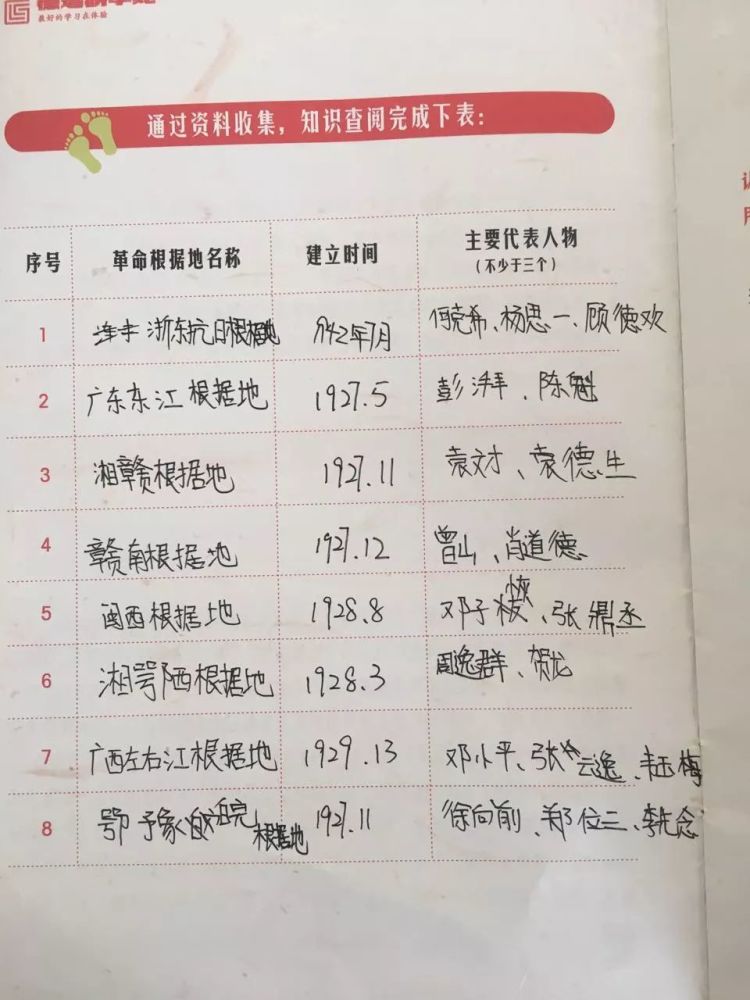 最好的学习在体验
通过资料收集，知识查阅完成下表：
序号 革命根据地名称 建立时间 主要代表人物
（不少于三个）
1 浙东抗日根据地 1942年7月 何克希、杨思一、顾德欢
2 广东东江根据地 1927.5 彭湃、陈魁
3 湘赣根据地 1927.11 袁文才、袁德生
4 赣南根据地 1927.12 曾山、肖道德
5 闽西根据地 1928.8 邓子恢、张鼎丞
6 湘鄂西根据地 1928.3 周逸群、贺龙
7 广西左右江根据地 1929.13 邓小平、张云逸、韦玉梅
8 鄂予豪皖根据地 1927.11 徐向前、郑位三、李先念